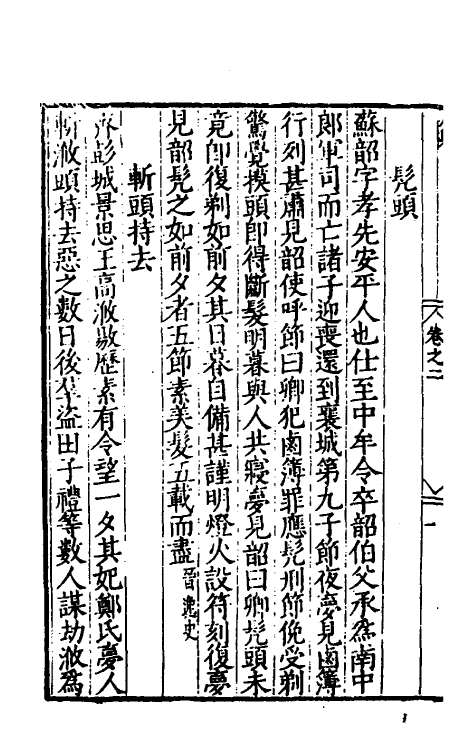 卷之二
一
髠頭
蘇韶字孝先安平人也仕至中牟令卒韶伯父承爲南中
郎軍司而亡諸子迎喪還到襄城第九子節夜夢見鹵簿
行列甚肅見韶使呼節曰卿犯鹵簿罪應髠刑節俛受剃
驚覺摸頭即得斷髮明暮與人共寢夢見韶曰卿髠頭未
竟即復剃如前夕其日暮自備甚謹明燈火設符刻復夢
見韶髠之如前夕者五節素美髮五載而盡晉逸史
斬頭持去
齊彭城景思王高浟敭歷素有令望一夕其妃鄭氏夢人
斬浟頭持去惡之數日後羣盜田子禮等數人謀劫浟爲